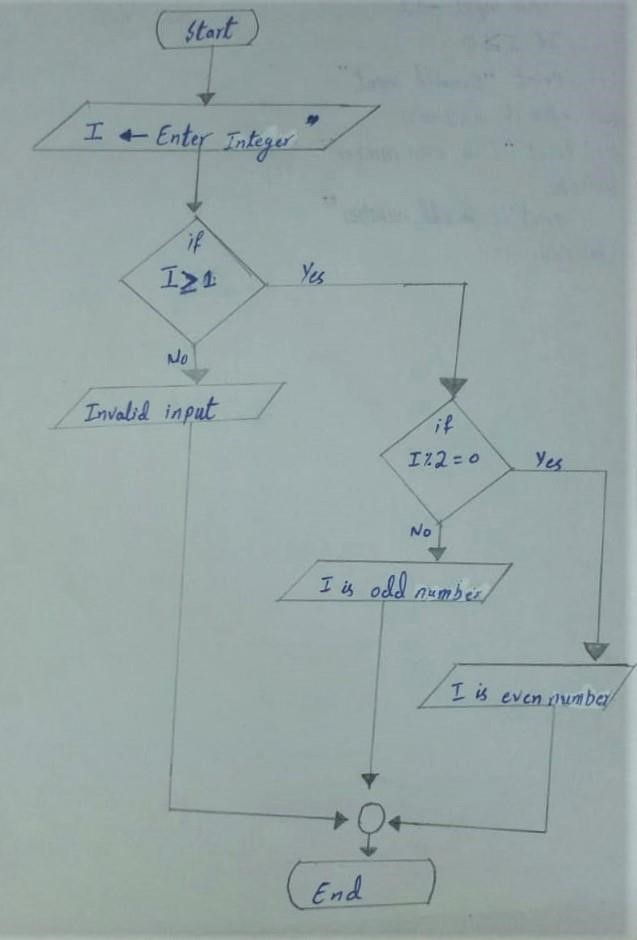 Start
I ← Enter Integer "
if
I ≥ 1
Yes
No
Invalid input
if
I%2=0
Yes
No
I is odd number
I is even number
End